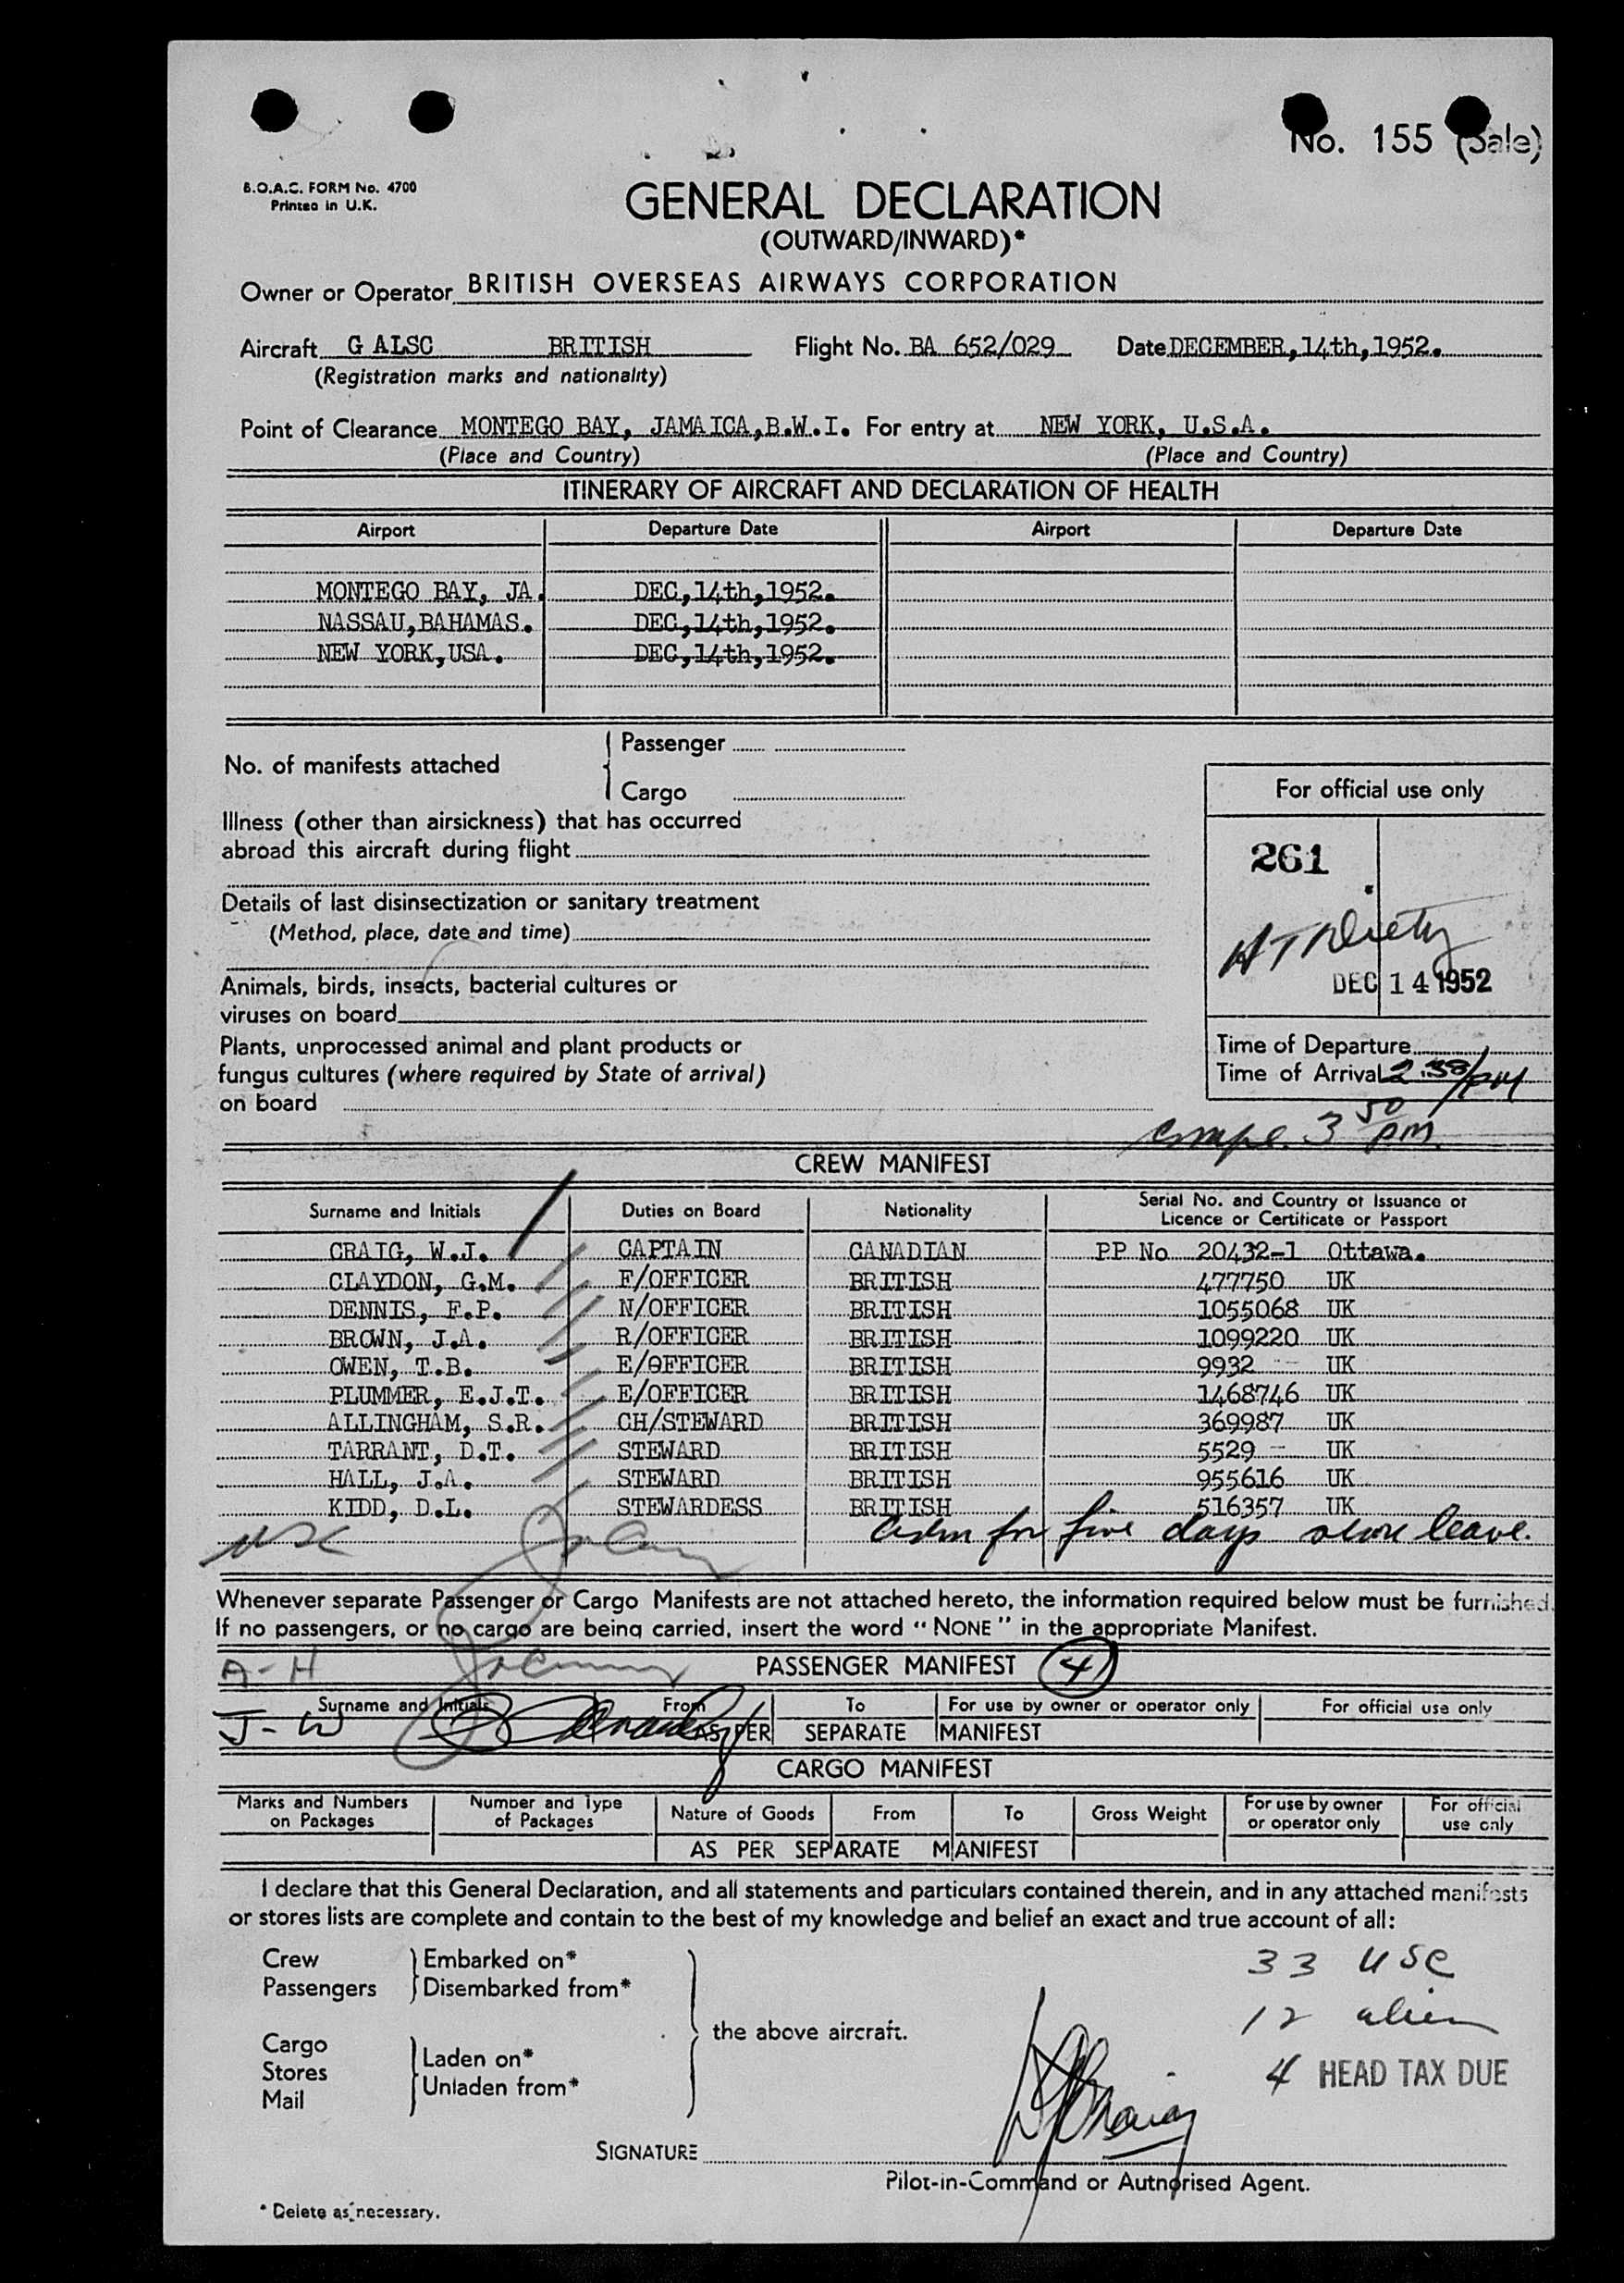 No. 155 (Sale)
B.O.A.C. FORM No. 4700
Printed in U.K.
GENERAL DECLARATION
(OUTWARD/INWARD)*
Owner or Operator BRITISH OVERSEAS AIRWAYS CORPORATION
Aircraft G ALSC BRITISH Flight No. BA 652/029 Date DECEMBER,14th,1952.
(Registration marks and nationality)
Point of Clearance MONTEGO BAY, JAMAICA,B.W.I. For entry at NEW YORK, U.S.A.
(Place and Country) (Place and Country)
ITINERARY OF AIRCRAFT AND DECLARATION OF HEALTH
Airport Departure Date Airport Departure Date
MONTEGO BAY, JA. DEC,14th,1952.
NASSAU,BAHAMAS. DEC,14th,1952.
NEW YORK,USA. DEC,14th,1952.
No. of manifests attached
Passenger
Cargo
Illness (other than airsickness) that has occurred
abroad this aircraft during flight
Details of last disinsectization or sanitary treatment
(Method, place, date and time)
Animals, birds, insects, bacterial cultures or
viruses on board
Plants, unprocessed animal and plant products or
fungus cultures (where required by State of arrival)
on board
For official use only
261
DEC 14 1952
Time of Departure
Time of Arrival 2.38/PM
3 50 pm
CREW MANIFEST
Surname and Initials Duties on Board Nationality Serial No. and Country of Issuance of
Licence or Certificate or Passport
CRAIG, W.J. CAPTAIN CANADIAN PP No 20432-1 Ottawa.
CLAYDON, G.M. F/OFFICER BRITISH 477750 UK
DENNIS, F.P. N/OFFICER BRITISH 1055068 UK
BROWN, J.A. R/OFFICER BRITISH 1099220 UK
OWEN, T.B. E/OFFICER BRITISH 9932 -- UK
PLUMMER, E.J.T. E/OFFICER BRITISH 1468746 UK
ALLINGHAM, S.R. CH/STEWARD BRITISH 369987 UK
TARRANT, D.T. STEWARD BRITISH 5529 - UK
HALL, J.A. STEWARD BRITISH 955616 UK
KIDD, D.L. STEWARDESS BRITISH 516357 UK
for five days shore leave.
Whenever separate Passenger or Cargo Manifests are not attached hereto, the information required below must be furnished.
If no passengers, or no cargo are being carried, insert the word "NONE" in the appropriate Manifest.
A-H
PASSENGER MANIFEST 4
Surname and Initials From To For use by owner or operator only For official use only
J-W
AS PER SEPARATE MANIFEST
CARGO MANIFEST
Marks and Numbers on Packages Number and Type of Packages Nature of Goods From To Gross Weight For use by owner or operator only For official use only
AS PER SEPARATE MANIFEST
I declare that this General Declaration, and all statements and particulars contained therein, and in any attached manifests
or stores lists are complete and contain to the best of my knowledge and belief an exact and true account of all:
Crew
Passengers
Embarked on*
Disembarked from*
Cargo
Stores
Mail
Laden on*
Unladen from*
the above aircraft.
33 USC
12 alien
4 HEAD TAX DUE
SIGNATURE
Pilot-in-Command or Authorised Agent.
* Delete as necessary.